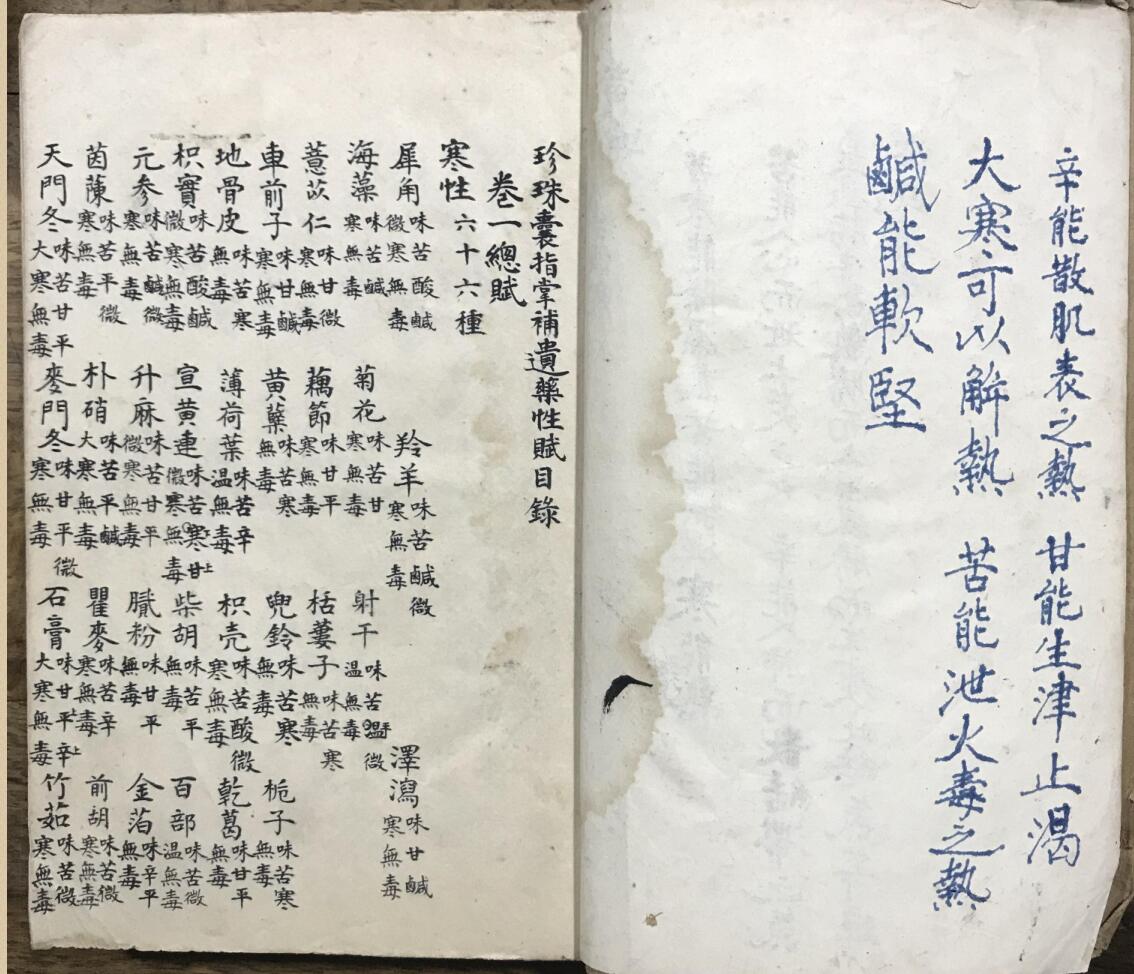 辛能散肌表之熱 甘能生津止渴
大寒可以解熱 苦能泄火毒之熱
鹹能軟堅
珍珠囊指掌補遺藥性賦目錄
卷一總賦
寒性六十六種
犀角味苦酸鹹微寒無毒 羚羊味苦鹹微寒無毒 澤瀉味甘鹹寒無毒
海藻味苦鹹寒無毒 菊花味苦甘寒無毒 射干味苦微温無毒
薏苡仁味甘微寒無毒 藕節味甘平寒無毒 栝蔞子味苦寒無毒
車前子味甘鹹寒無毒 黄蘗味苦寒無毒 兜鈴味苦寒無毒 梔子味苦寒無毒
地骨皮味苦寒無毒 薄荷葉味苦辛温無毒 枳壳味苦酸微寒無毒 乾葛味甘平無毒
枳實味苦酸鹹微寒無毒 宣黄連味苦寒甘上微寒無毒 柴胡味苦平無毒 百部味苦微温無毒
元参味苦鹹微寒無毒 升麻味苦甘平微寒無毒 膩粉味甘平無毒 金萡味辛平無毒
茵蔯味苦平微寒無毒 朴硝味苦平鹹大寒無毒 瞿麥味苦辛寒無毒 前胡味苦微寒無毒
天門冬味苦甘平大寒無毒 麥門冬味甘平微寒無毒 石膏味甘平辛上大寒無毒 竹茹味苦微寒無毒